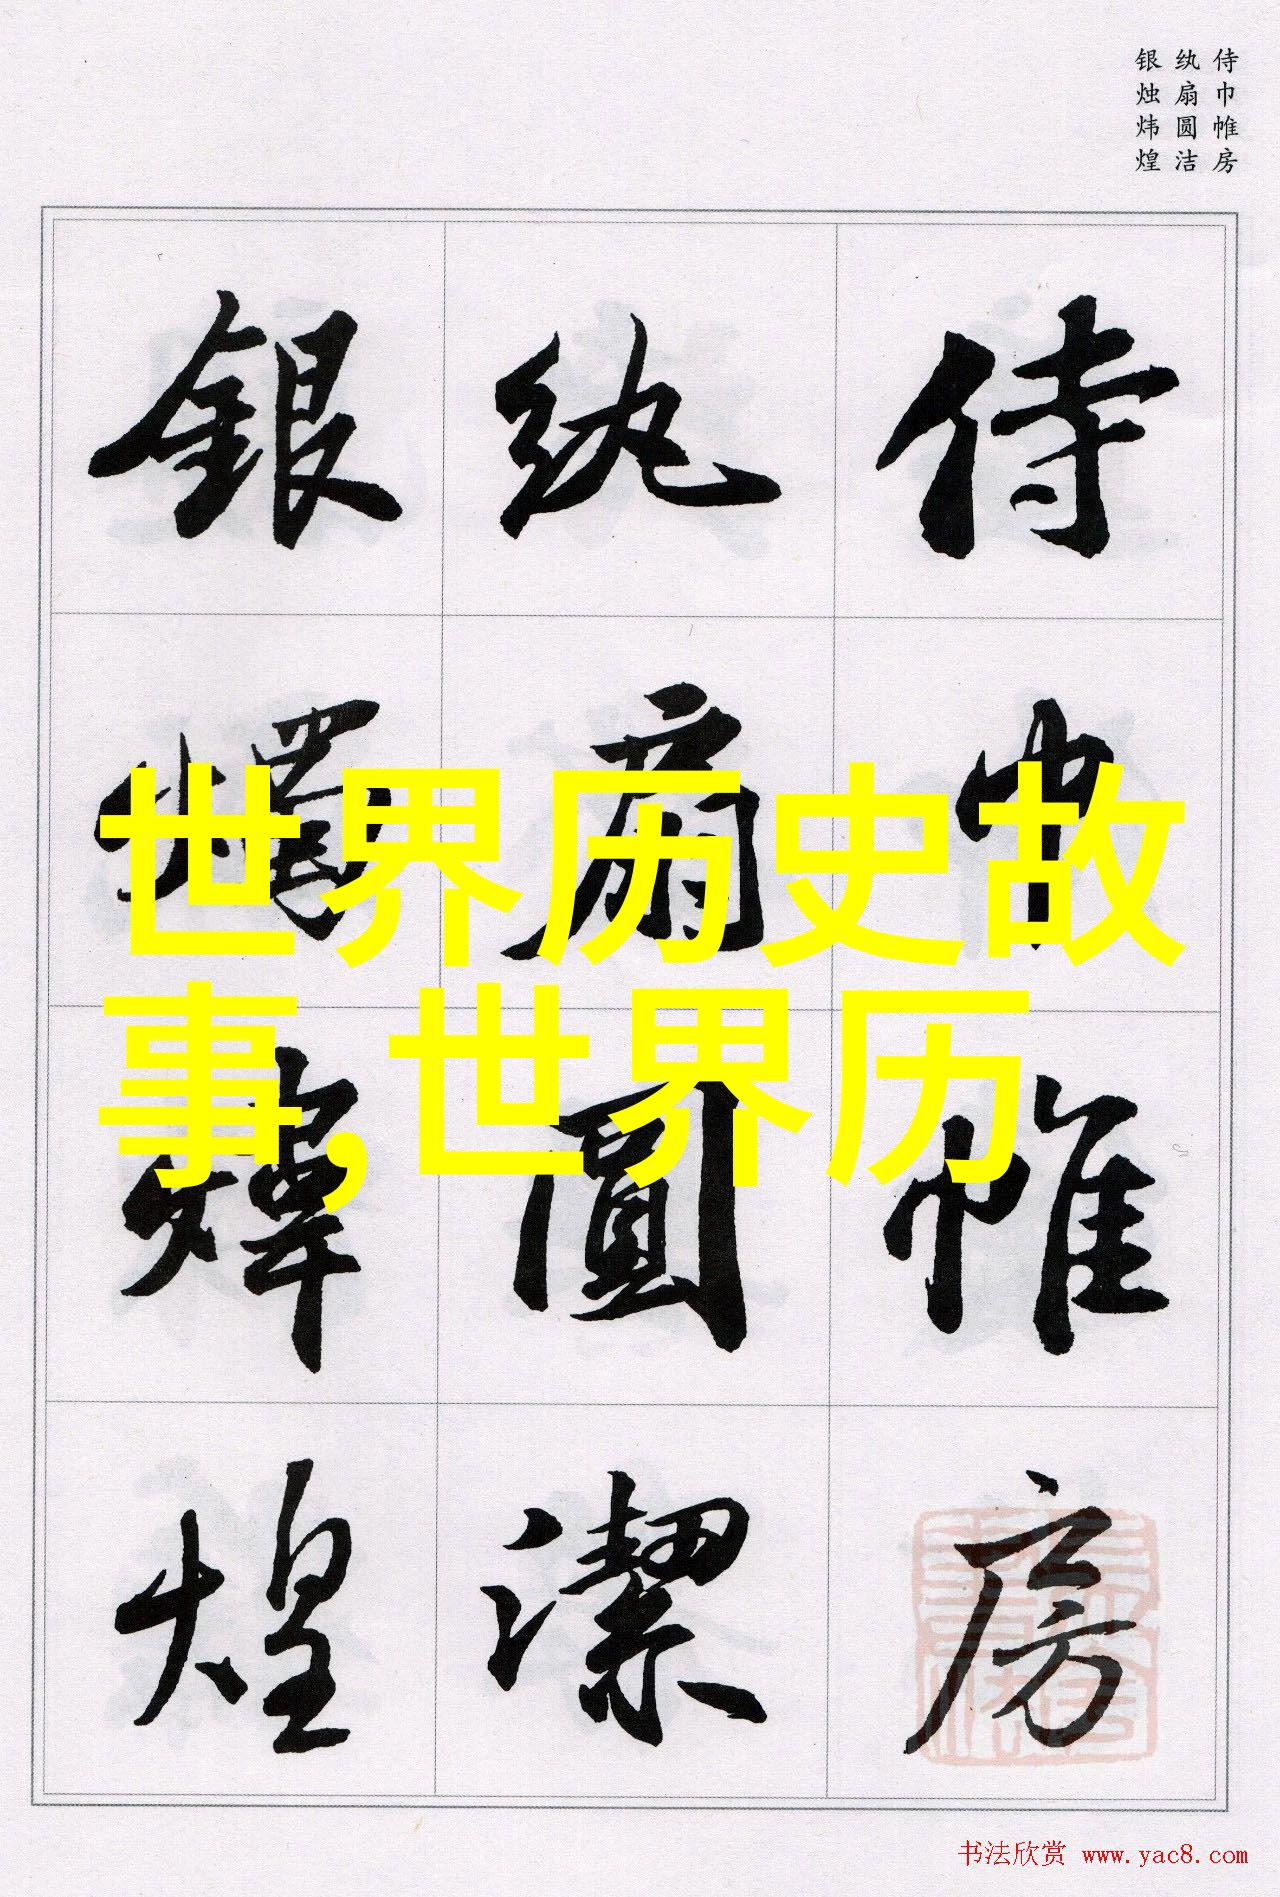 侍巾帷房
纨扇圆洁
银烛炜煌
侍巾帷房
纨扇圓潔
銀燭煒煌
世界历史故
事,世界历
书法欣赏 www.yac8.com